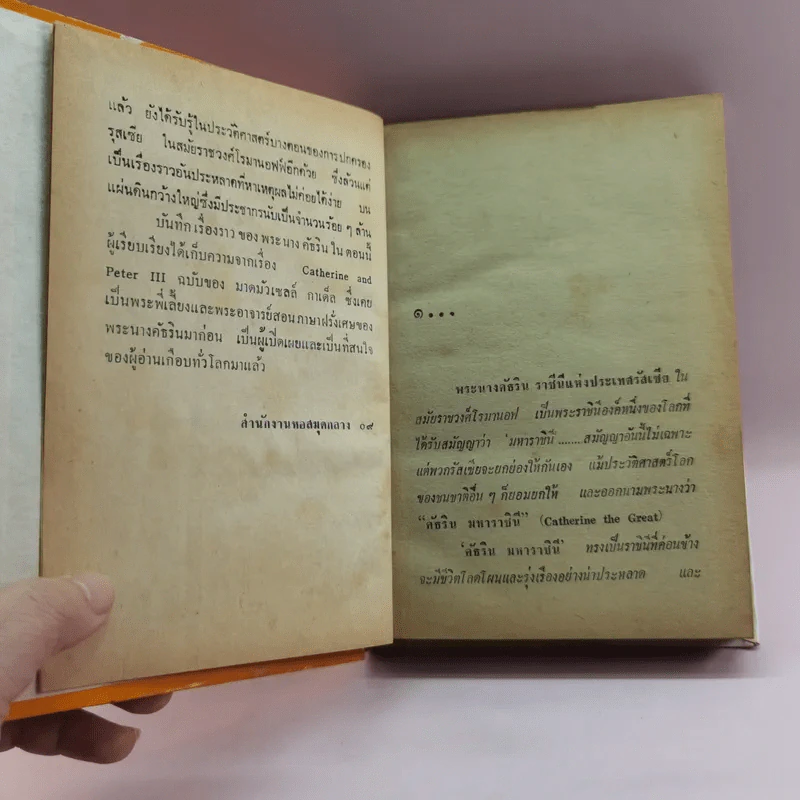 แล้ว ยังได้รับรู้ในประวัติศาสตร์บางตอนของการปกครอง
รุสเซีย ในสมัยราชวงศ์โรมานอฟฟ์อีกด้วย ซึ่งล้วนแต่
เป็นเรื่องราวอันประหลาดที่หาเหตุผลไม่ค่อยได้ง่าย บน
แผ่นดินกว้างใหญ่ซึ่งมีประชากรนับเป็นจำนวนร้อย ๆ ล้าน
บันทึกเรื่องราวของพระนางคัธรินในตอนนี้
ผู้เรียบเรียงได้เก็บความจากเรื่อง Catherine and
Peter III ฉบับของ มาดมัวเซลล์ กาเด็ล ซึ่งเคย
เป็นพระพี่เลี้ยงและพระอาจารย์สอนภาษาฝรั่งเศษของ
พระนางคัธรินมาก่อน เป็นผู้เปิดเผยและเป็นที่สนใจ
ของผู้อ่านเกือบทั่วโลกมาแล้ว
สำนักงานหอสมุดกลาง ๐๙
๑...
พระนางคัธริน ราชีนีแห่งประเทศรัสเซีย ใน
สมัยราชวงศ์โรมานอฟ เป็นพระราชินีองค์หนึ่งของโลกที่
ได้รับสมัญญาว่า 'มหาราชินี'.......สมัญญาอันนี้ไม่เฉพาะ
แต่พวกรัสเซียจะยกย่องให้กันเอง แม้ประวัติศาสตร์โลก
ของชนชาติอื่น ๆ ก็ยอมยกให้ และออกนามพระนางว่า
"คัธริน มหาราชินี" (Catherine the Great)
'คัธริน มหาราชินี' ทรงเป็นราชินีที่ค่อนข้าง
จะมีชีวิตโลดโผนและรุ่งเรืองอย่างน่าประหลาด และ